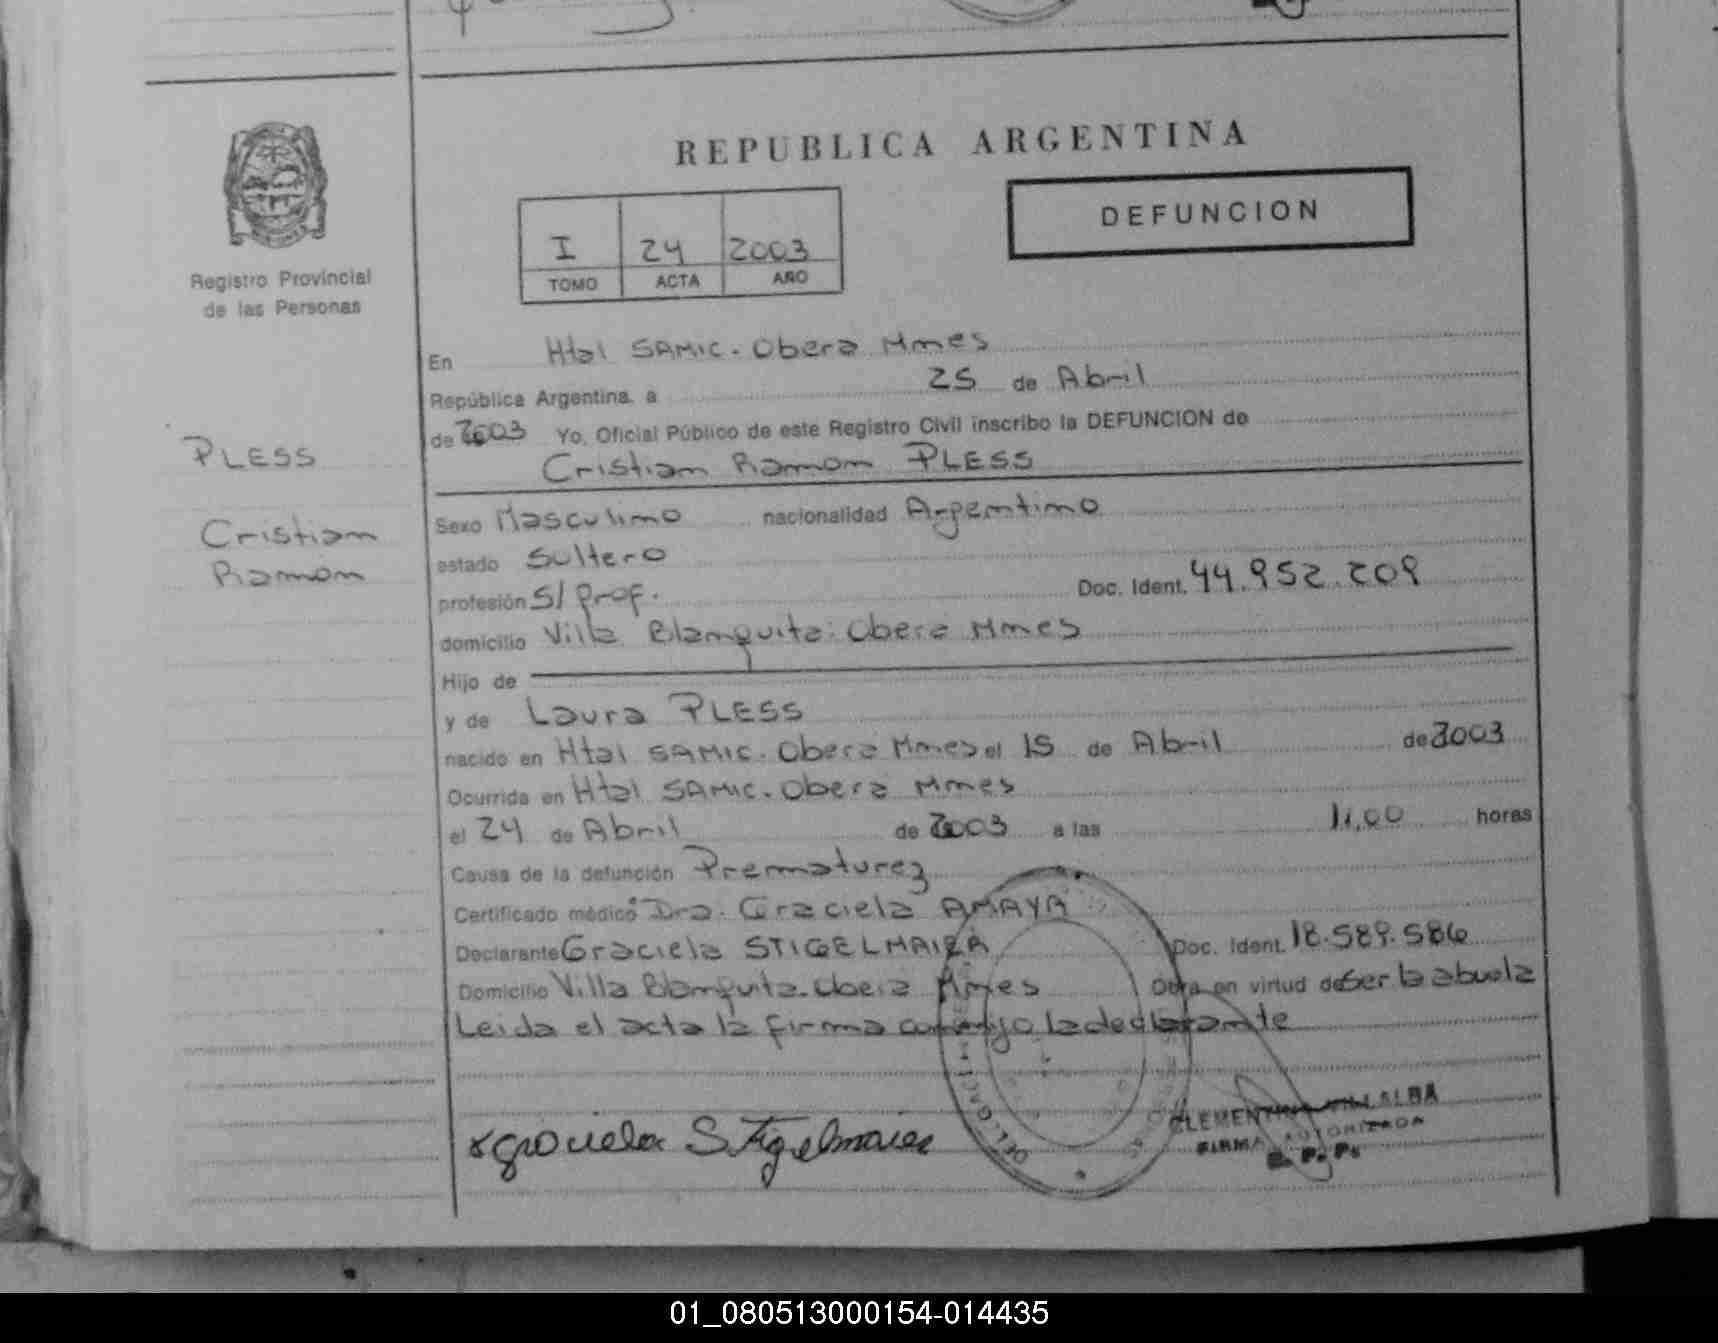 REPUBLICA ARGENTINA
DEFUNCION
I 24 2003
TOMO ACTA AÑO
Registro Provincial
de las Personas
PLESS
Cristian
Ramon
En Htal SAMIC. Obera Mnes
República Argentina, a 25 de Abril
de 2003 Yo, Oficial Público de este Registro Civil inscribo la DEFUNCION de
Cristian Ramon PLESS
Sexo Masculino nacionalidad Argentino
estado Soltero
profesión S/ prof. Doc. Ident. 44.952.209
domicilio Villa Blanquita. Obera Mnes
Hijo de
y de Laura PLESS
nacido en Htal SAMIC. Obera Mnes el 15 de Abril de 2003
Ocurrida en Htal SAMIC. Obera Mnes
el 24 de Abril de 2003 a las 11,00 horas
Causa de la defunción Prematurez
Certificado médico Dra. Graciela AMAYA
Declarante Graciela STIGELMAIER Doc. Ident. 18.589.586
Domicilio Villa Blanquita. Obera Mnes Obra en virtud de Ser la abuela
Leida el acta la firma conmigo la declarante
x graciela Stigelmaier
CLEMENTINA VILLALBA
FIRMA AUTORIZADA
R. P. P.
01_080513000154-014435